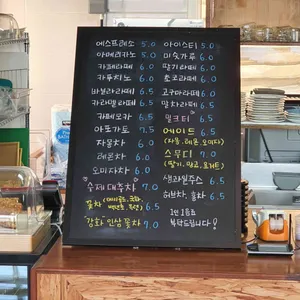 에스프레소 5.0
아메리카노 5.0
카페라떼 6.0
카푸치노 6.0
바닐라라떼 6.5
카라멜라떼 6.5
카페모카 6.5
아포가토 7.5
자몽차 6.0
레몬차 6.0
오미자차 6.0
수제 대추차 7.0
꽃차 6.5
강화 인삼꽃차 7.0
아이스티 5.0
미숫가루 6.0
딸기라떼 6.0
초코라떼 6.0
고구마라떼 6.5
말차라떼 6.5
밀크티 6.5
에이드 6.5
(자몽, 레몬, 오미자)
스무디 7.0
(딸기, 망고, 요거트)
생과일주스 6.5
허브차, 홍차 6.5
1인 1음료
부탁드립니다!